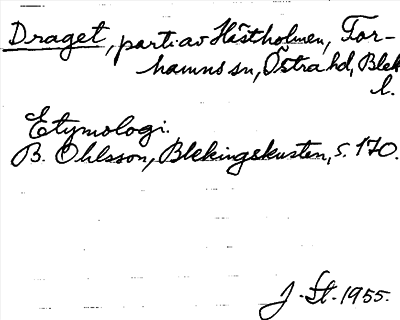 Draget, parti av Hästholmen, Tor-
hamns sn, Östra hd, Blek
l.
Etymologi.
B. Ohlsson, Blekingskusten, s. 170.
J. St. 1955.